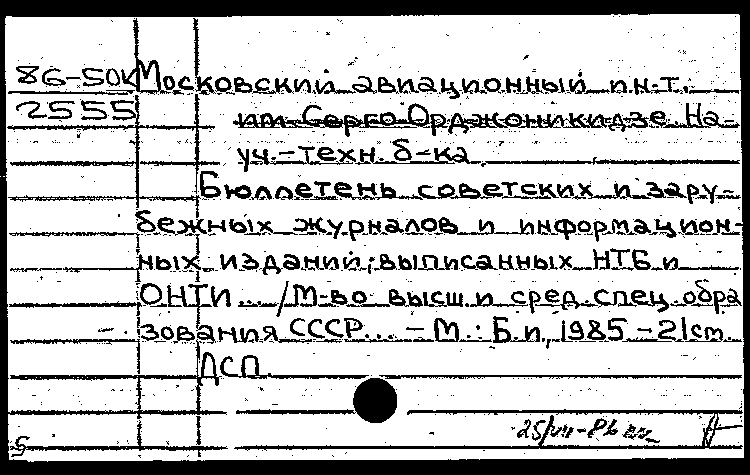 86-50к Московский авиационный ин-т.
2555 им. Серго Орджоникидзе. На-
уч.-техн. б-ка
Бюллетень советских и зару-
бежных журналов и информацион-
ных изданий, выписанных НТБ и
ОНТИ... /М-во высш. и сред. спец. обра
зования СССР... - М.: Б.и., 1985 - 21 ст.
ДСП.